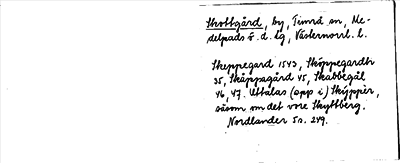 Skottgård, by, Timrå sn, Me-
delpads t. d. lg, Västernorrl. l.
Skeppegard 1543, Sköppegardh
35, Skäppagård 45, Skabbegål
46, 47. Uttalas (opp i) Skýppär,
såsom om det vore Skyttberg.
Nordlander Sn. 249.